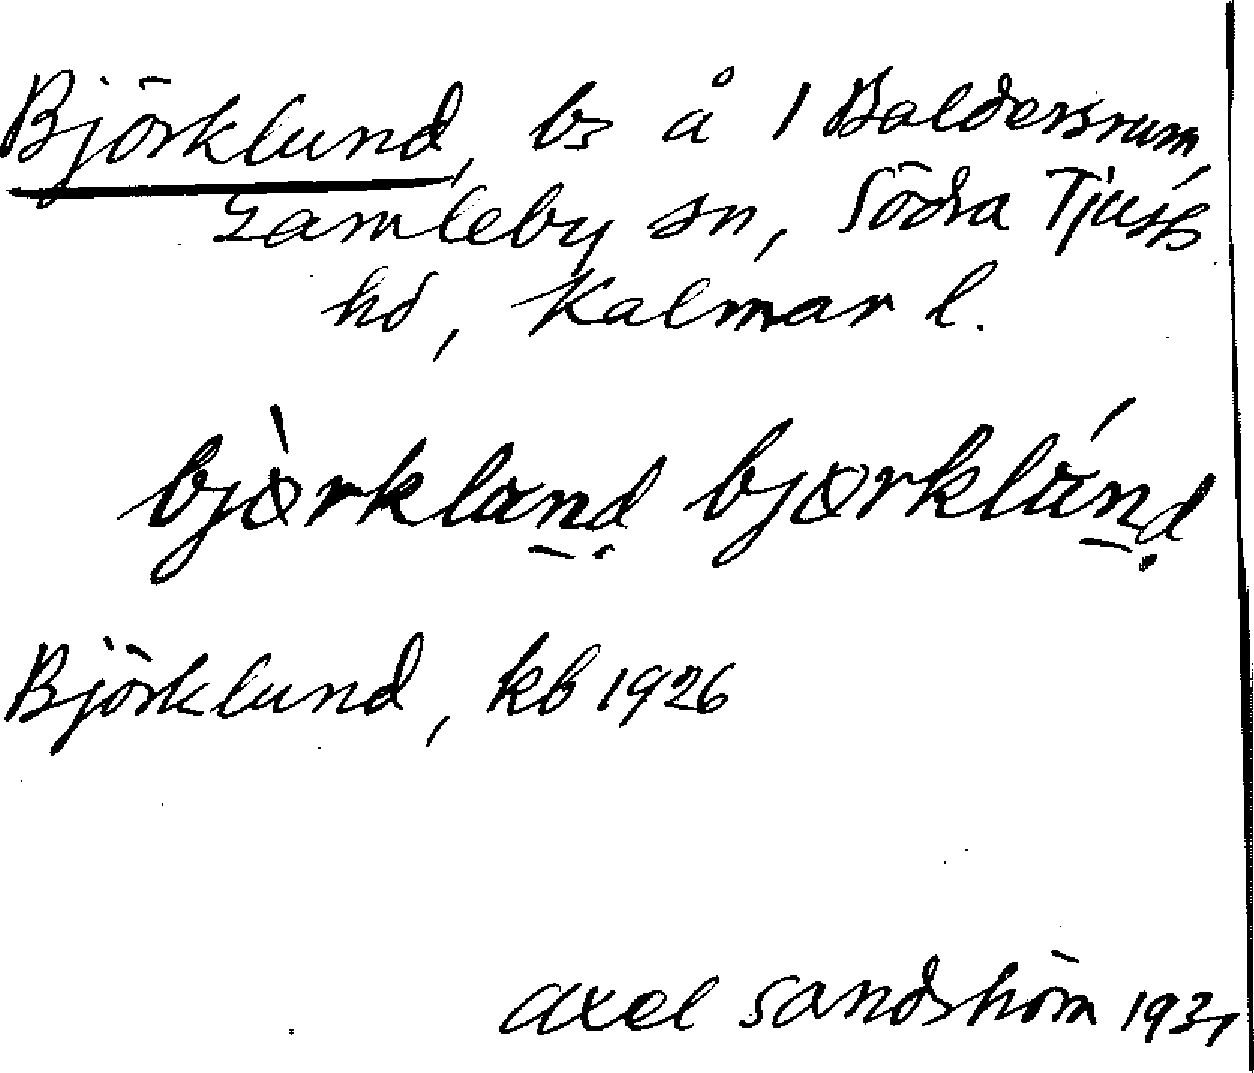 Björklund, bs å 1 Baldersrum,
Gamleby sn, Södra Tjusts
hd, Kalmar l.
bjòrkland bjørklánd
Björklund, kb 1926
Axel Sandström